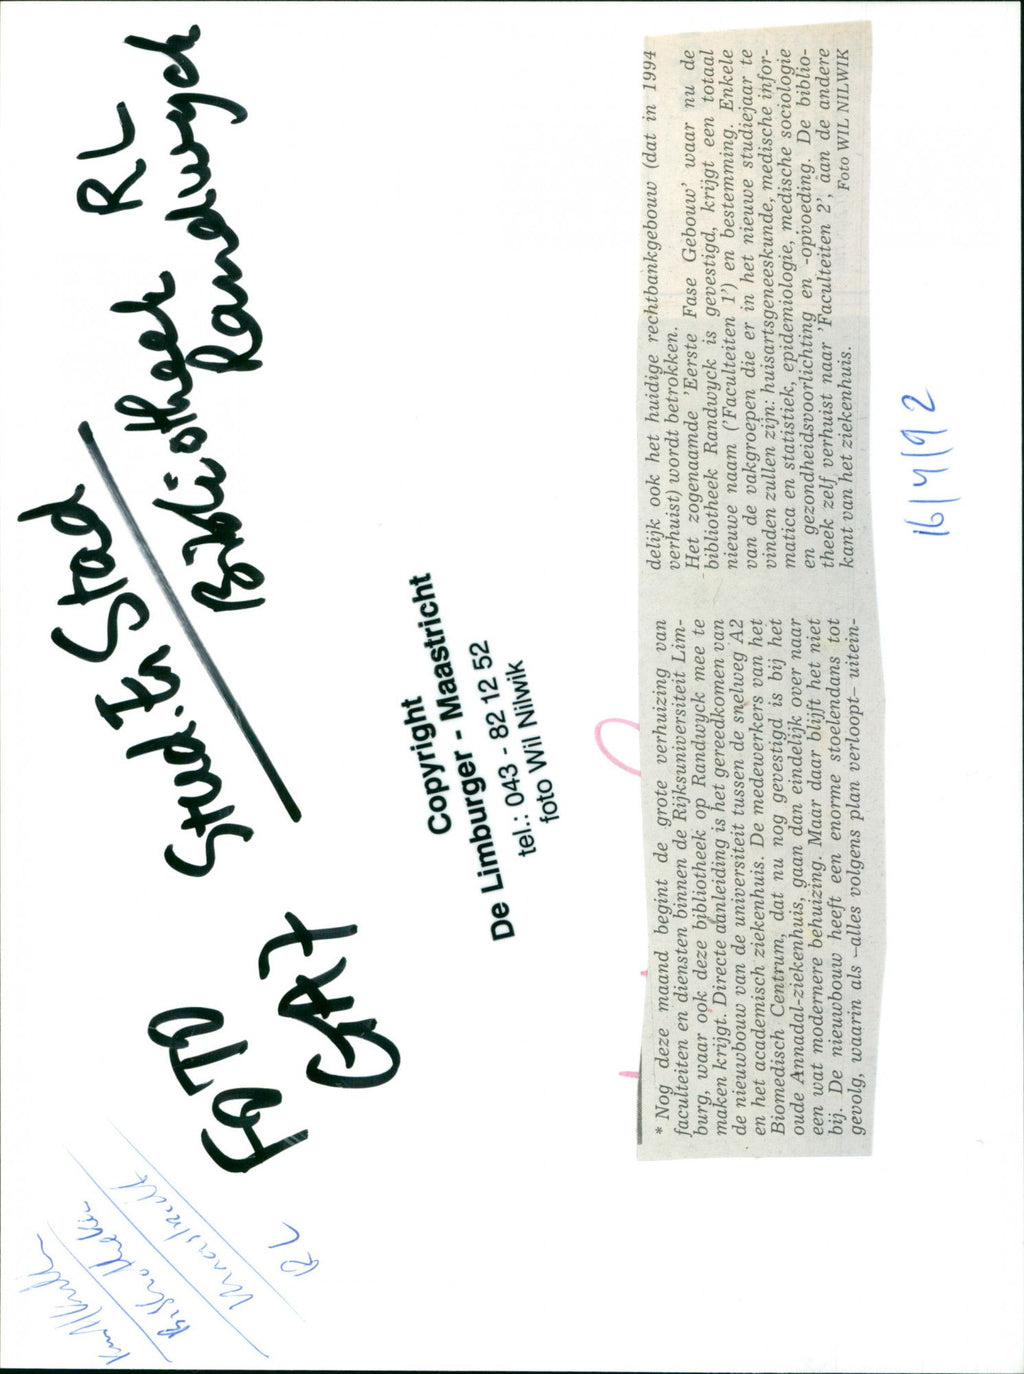 FOTO
Stud. In Stad
GA7
Bibliotheek RL
Randwyck
Bibliotheken
Maastricht
RL
Copyright
De Limburger - Maastricht
tel.: 043 - 82 12 52
foto Wil Nilwik
* Nog deze maand begint de grote verhuizing van
faculteiten en diensten binnen de Rijksuniversiteit Lim-
burg, waar ook deze bibliotheek op Randwyck mee te
maken krijgt. Directe aanleiding is het gereedkomen van
de nieuwbouw van de universiteit tussen de snelweg A2
en het academisch ziekenhuis. De medewerkers van het
Biomedisch Centrum, dat nu nog gevestigd is bij het
oude Annadal-ziekenhuis, gaan dan eindelijk over naar
een wat modernere behuizing. Maar daar blijft het niet
bij. De nieuwbouw heeft een enorme stoelendans tot
gevolg, waarin als –alles volgens plan verloopt– uitein-
delijk ook het huidige rechtbankgebouw (dat in 1994
verhuist) wordt betrokken.
Het zogenaamde 'Eerste Fase Gebouw' waar nu de
bibliotheek Randwyck is gevestigd, krijgt een totaal
nieuwe naam ('Faculteiten 1') en bestemming. Enkele
van de vakgroepen die er in het nieuwe studiejaar te
vinden zullen zijn: huisartsgeneeskunde, medische infor-
matica en statistiek, epidemiologie, medische sociologie
en gezondheidsvoorlichting en -opvoeding. De biblio-
theek zelf verhuist naar 'Faculteiten 2', aan de andere
kant van het ziekenhuis.
Foto WIL NILWIK
16/4/92